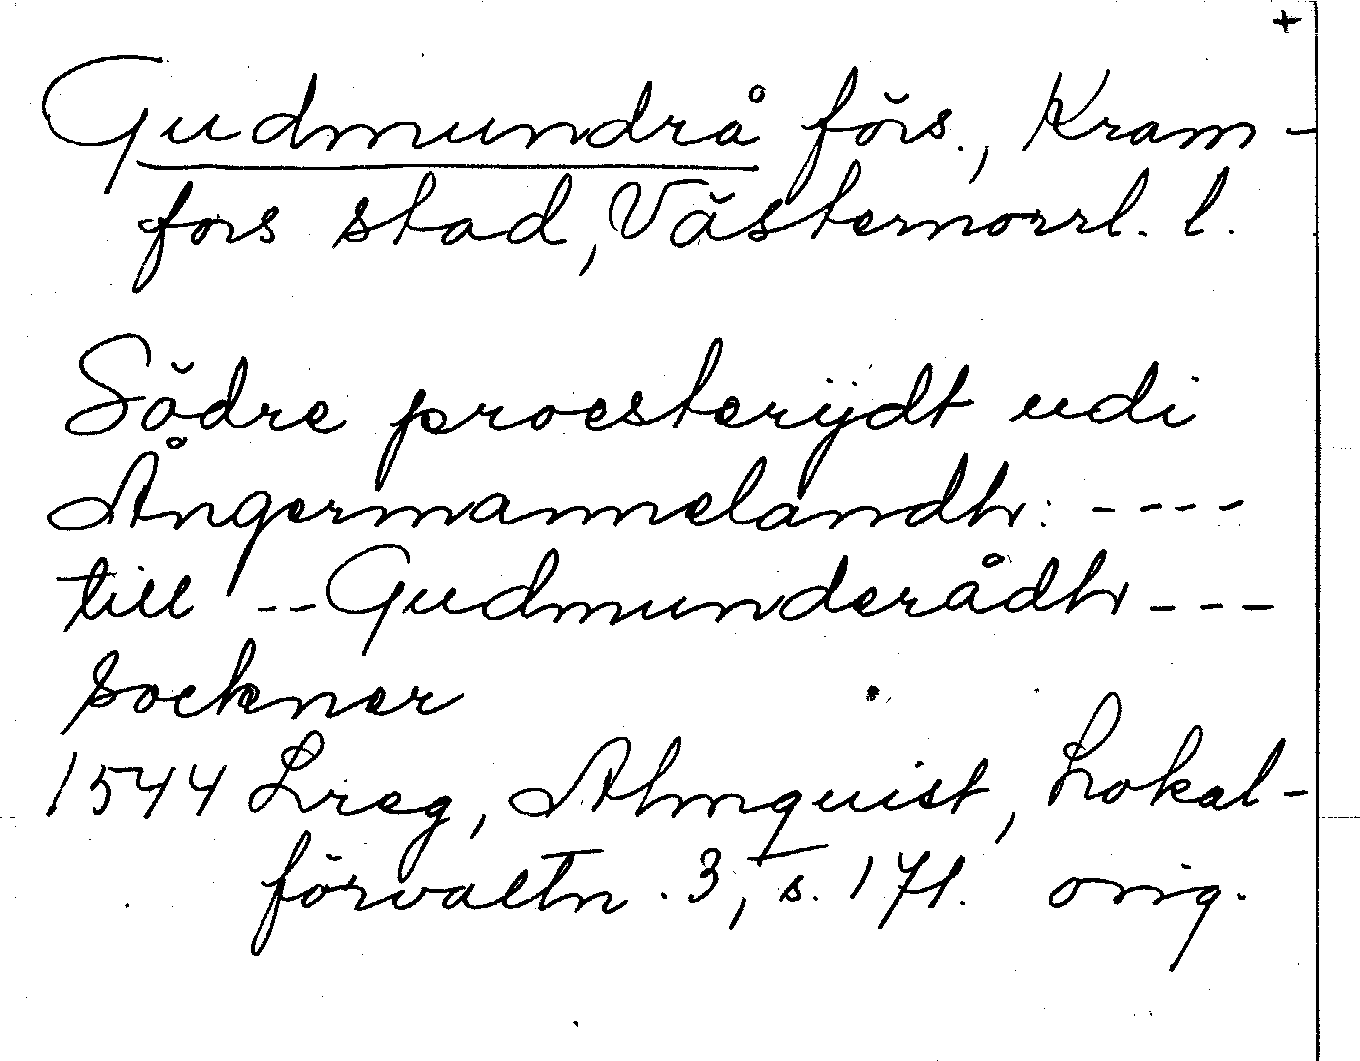 +
Gudmundrå förs., Kram-
fors stad, Västernorrl. l.
Södre proesterijdt udi
Ångermannelandh: ----
till -- Gudmunderådh ---
Sockner
1544 Lreg, Almquist, Lokal-
förvaltn. 3, s. 171. orig.